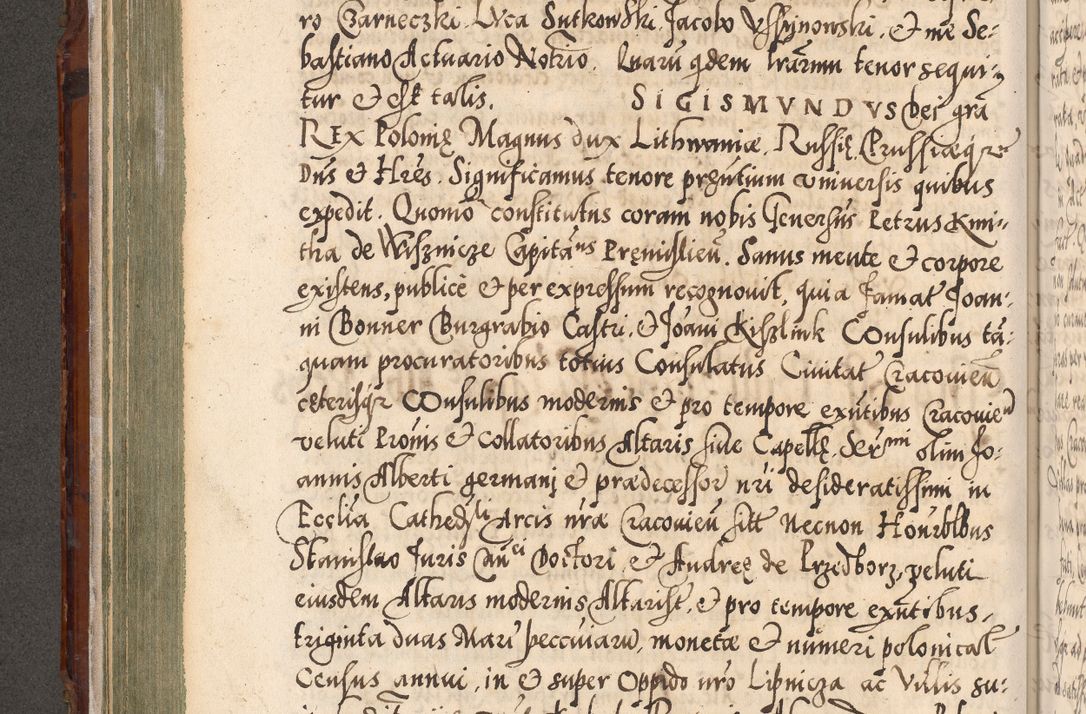 ro Czarneczki. Lvca Sutkowski. Jacobo Vssynowski. & me Se-
bastiano Actuario Notrio. Quaru qdem lrarum tenor sequi-
tur & est talis. SIGISMVNDVS Dei gra
REx Polonię Magnus dux Lithwaniæ. Russię. Prussiæq
Dns & Hres. Significamus tenore pręntium vniuersis quibus
expedit. Quomo constitutus coram nobis Generssus Petrus Kmi-
tha de Wisznicze Capitaus Pręmislieu. Sanus mente & corpore
existens, publicè & per expressum recognouit, quia famat Joan-
ni Bonner Burgrabio Castri. & Joani Kislink COnsulibus tā-
quam procuratoribus totius Consulatus Ciuitat Cracouieu
cęterisqr COnsulibus modernis & pro tempore exntibus Cracouien
veluti Prouis & Collatoribus Altaris siue Capellę. Sermi olim Jo-
annis Alberti germanj & prædecessor nri desideratissimi in
Ecclia Cathedrli Arcis nræ Cracouieu sitt Necnon Honrblbus
Stanislao Juris Canci Doctori. & Andreę de Przedborz, veluti
eiusdem Altaris modernis Altarist. & pro tempore exntibus,
triginta duas Mar peccuiaru, monetæ & numeri polonical
Census annui. in & super Oppido nro Lipnicza ac Villis su-